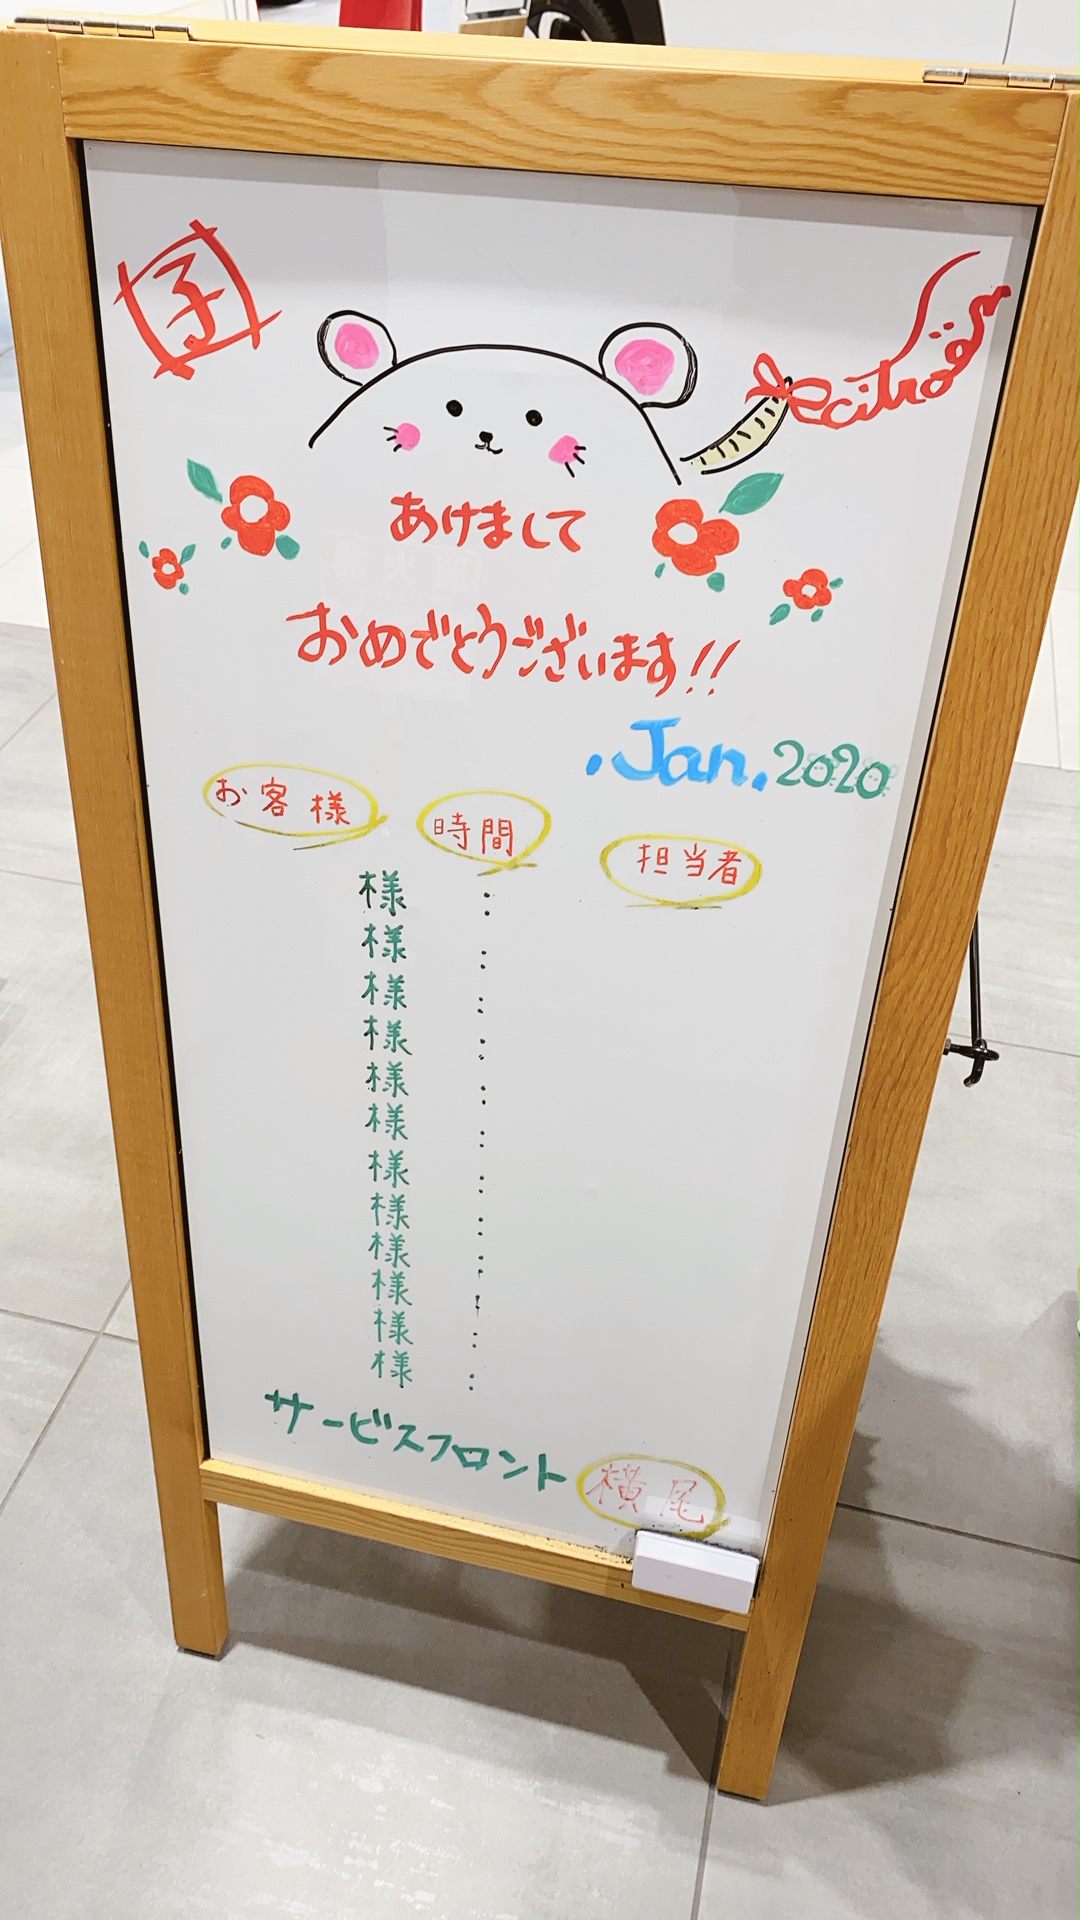 子
citroën
あけまして
おめでとうございます!!
.Jan.2020
お客様 時間 担当者
様 :
様 :
様 :
様 :
様 :
様 :
様 :
様 :
様 :
様 :
様 :
様 :
サービスフロント 横尾